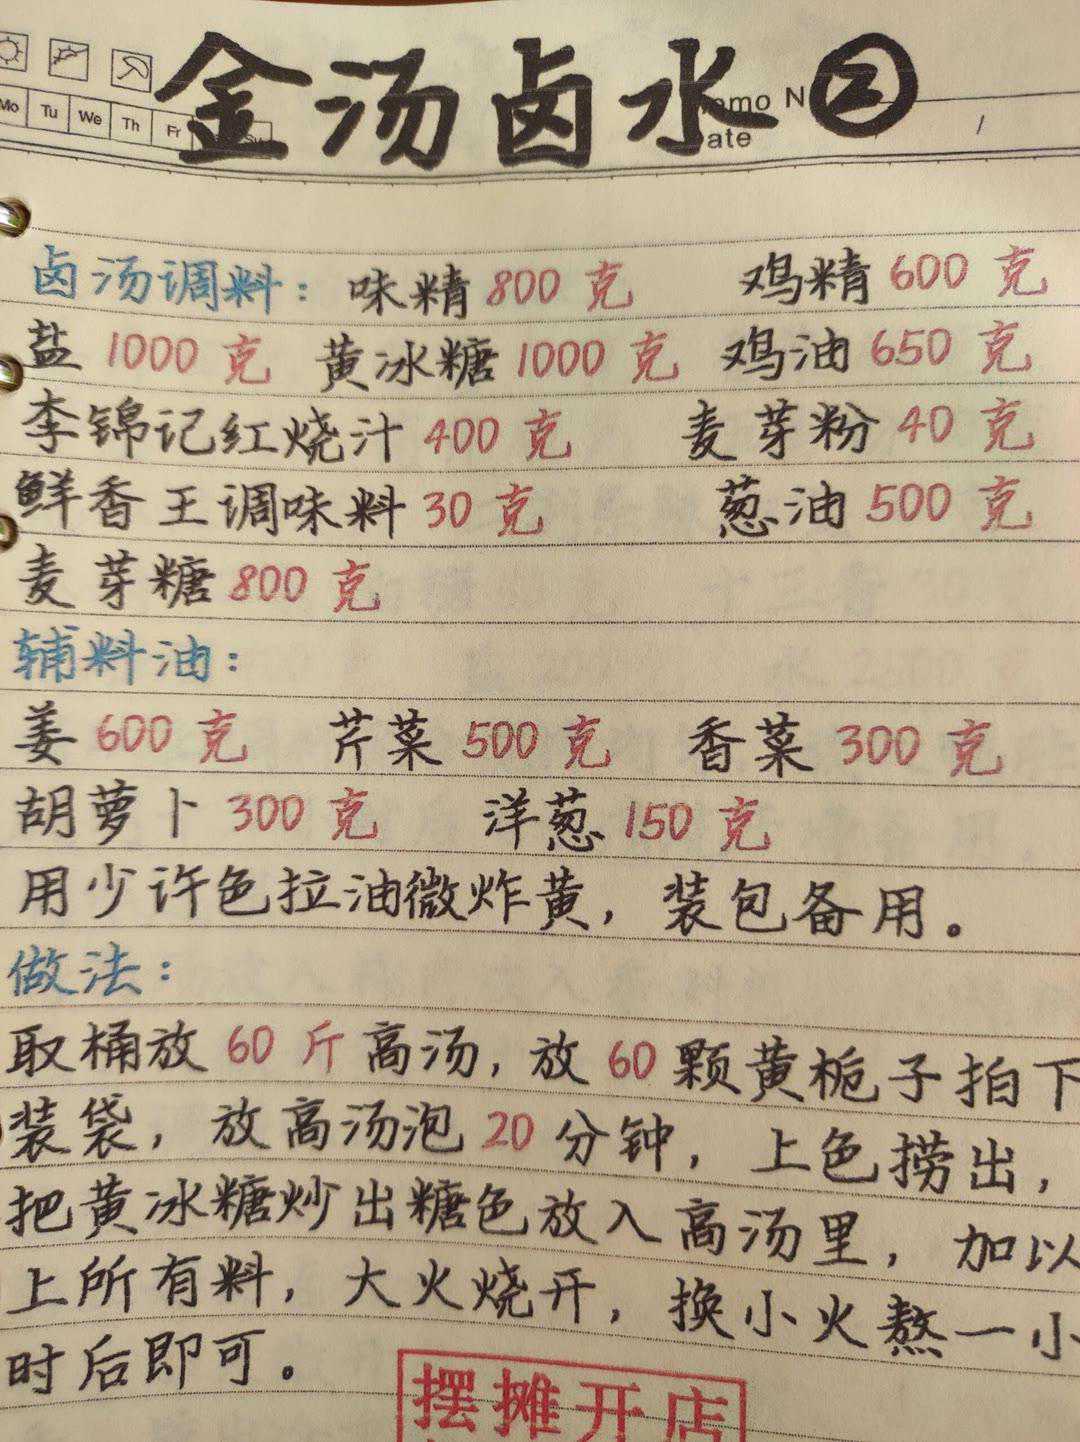 金汤卤水②
Memo N
Date /
Mo Tu We Th Fr Su
卤汤调料：味精800克 鸡精600克
盐1000克 黄冰糖1000克 鸡油650克
李锦记红烧汁400克 麦芽粉40克
鲜香王调味料30克 葱油500克
麦芽糖800克
辅料油：
姜600克 芹菜500克 香菜300克
胡萝卜300克 洋葱150克
用少许色拉油微炸黄，装包备用。
做法：
取桶放60斤高汤，放60颗黄栀子拍下
装袋，放高汤泡20分钟，上色捞出，
把黄冰糖炒出糖色放入高汤里，加以
上所有料，大火烧开，换小火熬一小
时后即可。
摆摊开店